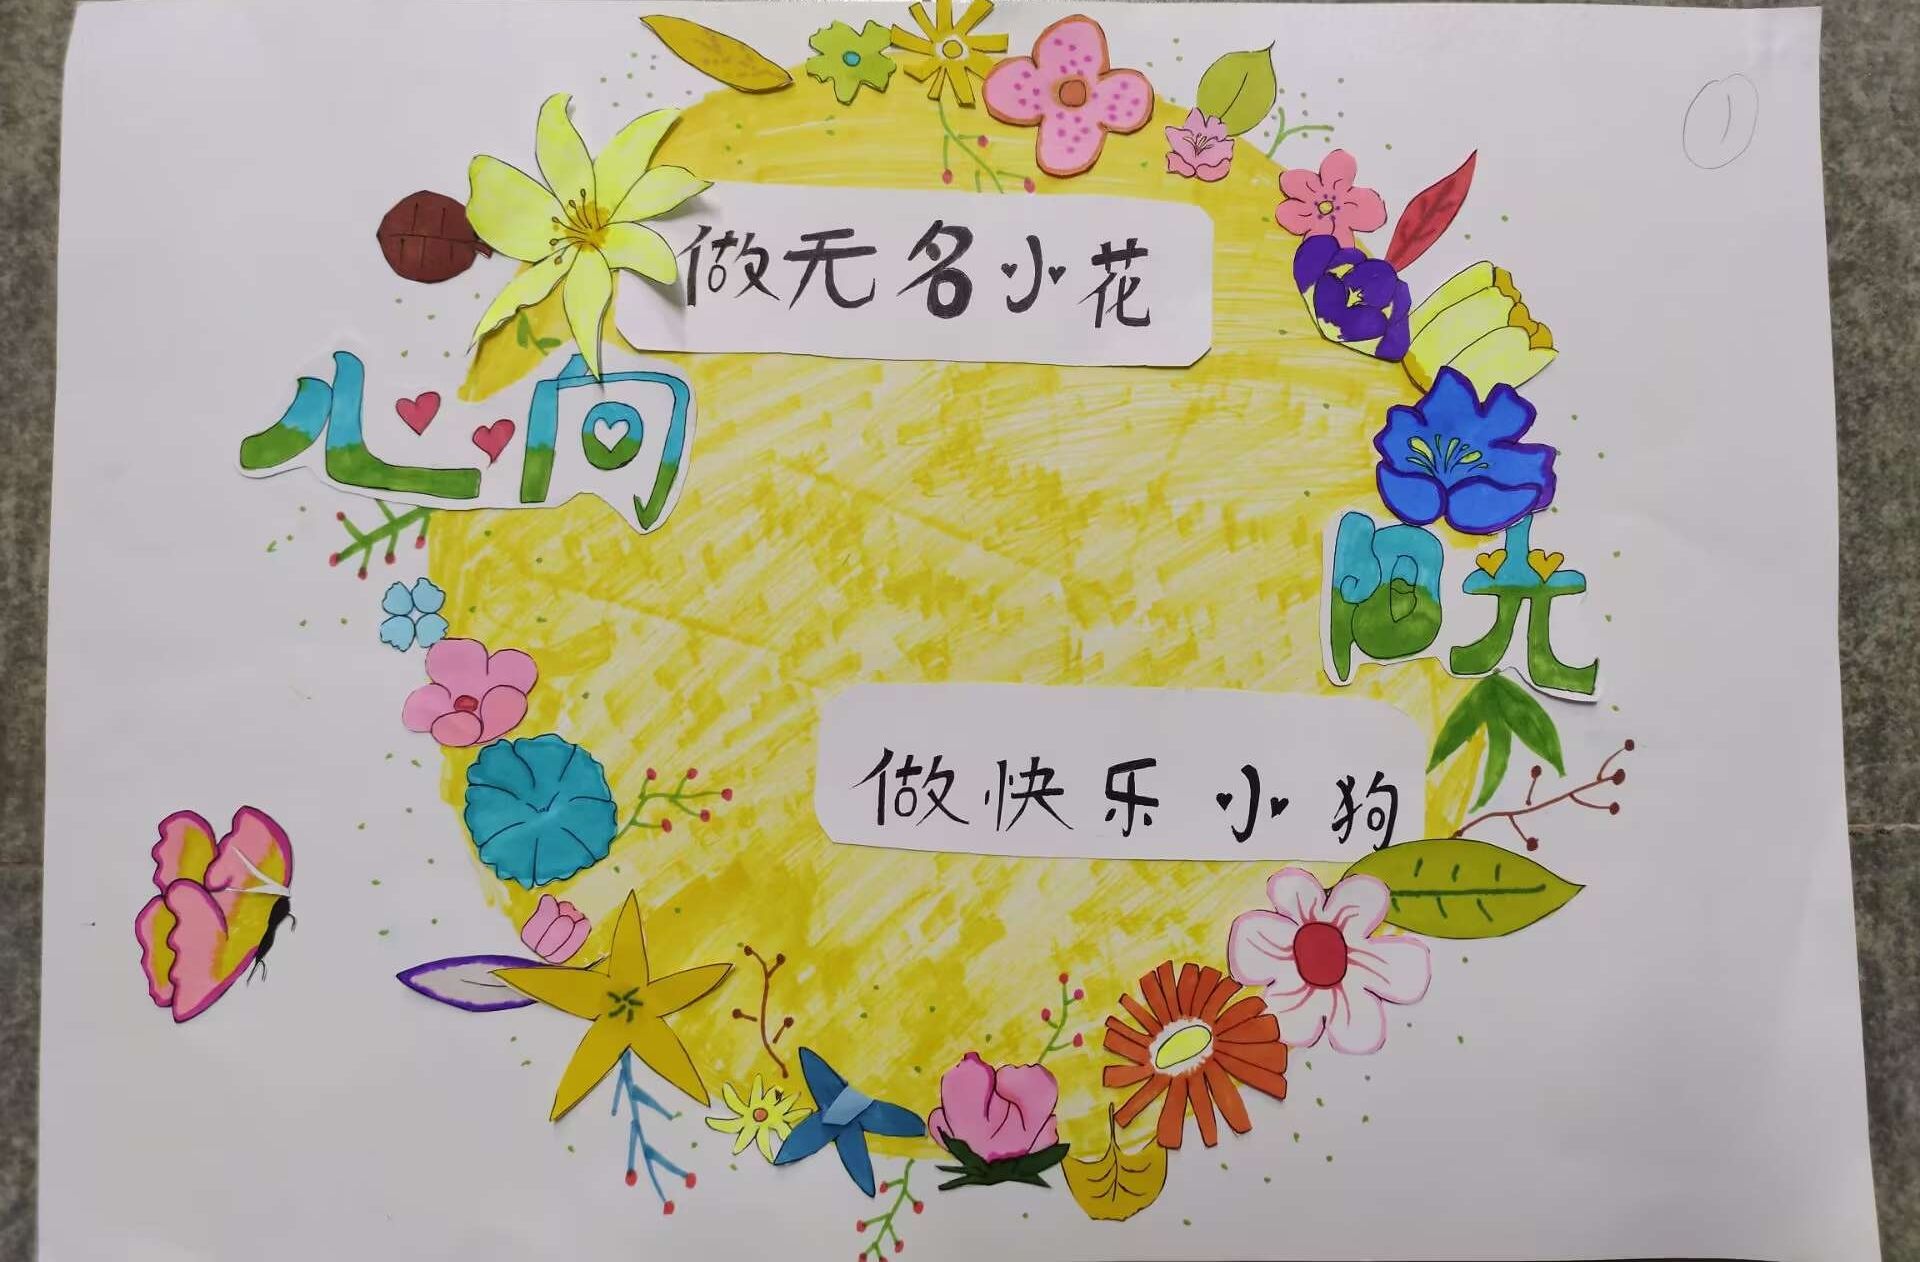 做无名小花
心向
阳光
做快乐小狗
1